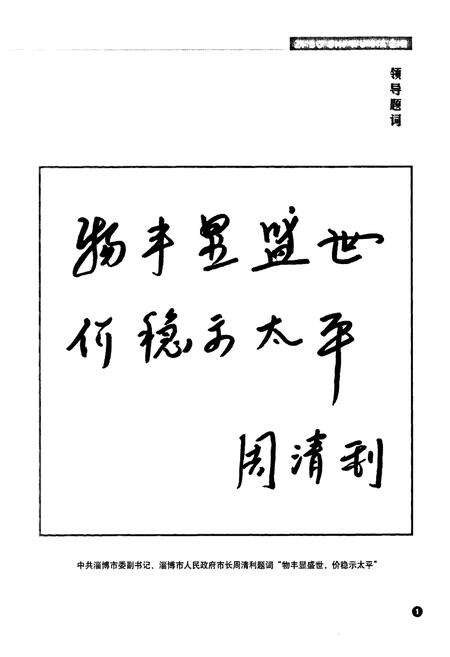 领导题词
物丰显盛世
价稳示太平
周清利
中共淄博市委副书记、淄博市人民政府市长周清利题词“物丰显盛世,价稳示太平”
1